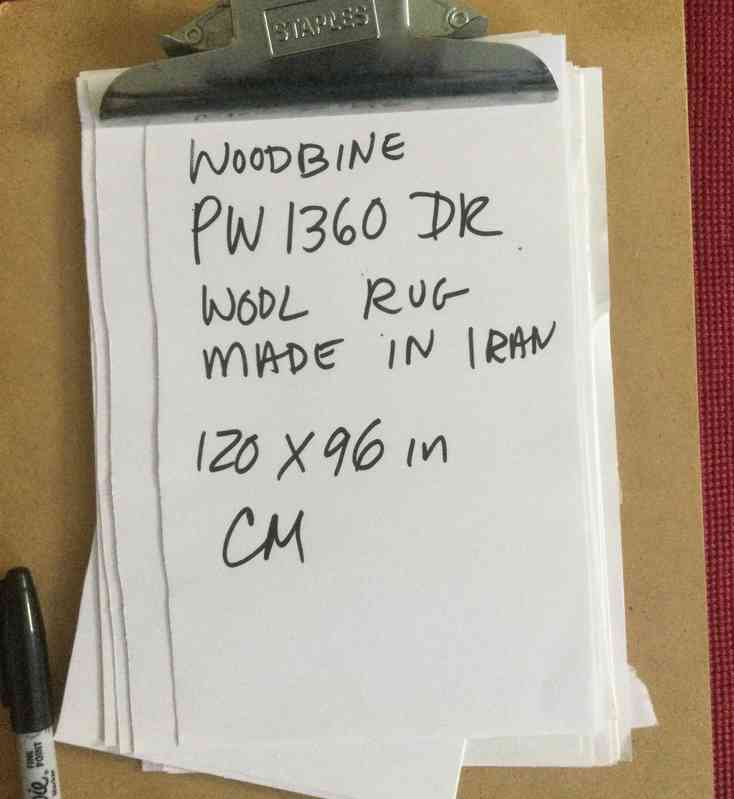 STAPLES
WOODBINE
PW 1360 DR
WOOL RUG
MADE IN IRAN
120 X 96 in
CM
FINE
POINT